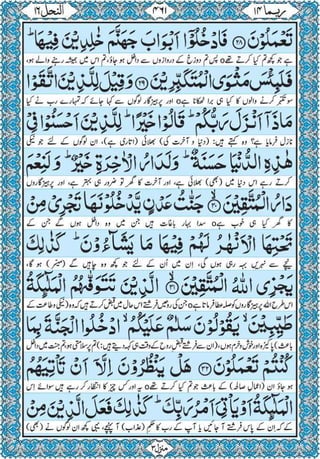 ربما ١٤ ٤٦١ النحل ١٦
تَعْمَلُوْنَ ﴿۲۸﴾ فَادْخُلُوْۤا اَبْوَابَ جَهَنَّمَ خٰلِدِيْنَ فِيْهَا ؕ
جو کچھ تم کیا کرتے تھےo پس تم دوزخ کے دروازوں سے داخل ہو جاؤ، تم اس میں ہمیشہ رہنے والے ہو،
فَلَبِئْسَ مَثْوَى الْمُتَكَبِّرِيْنَ ﴿۲۹﴾ وَقِيْلَ لِلَّذِيْنَ اتَّقَوْا
سو تکبر کرنے والوں کا کیا ہی برا ٹھکانا ہےo اور پرہیزگار لوگوں سے کہا جائے کہ تمہارے رب نے کیا
مَا ذَاۤ اَنْزَلَ رَبُّكُمْ ؕ قَالُوْا خَيْرًا ؕ لِلَّذِيْنَ اَحْسَنُوْا فِيْ
نازل فرمایا ہے؟ وہ کہتے ہیں: (دنیا و آخرت کی) بھلائی (اتاری ہے)، ان لوگوں کے لئے جو نیکی
هٰذِهِ الدُّنْيَا حَسَنَةٌ ؕ وَلَدَارُ الْاٰخِرَةِ خَيْرٌ ؕ وَلَنِعْمَ
کرتے رہے اس دنیا میں (بھی) بھلائی ہے، اور آخرت کا گھر تو ضرور ہی بہتر ہے، اور پرہیزگاروں
دَارُ الْمُتَّقِيْنَ ﴿۳۰﴾ جَنّٰتُ عَدْنٍ يَّدْخُلُوْنَهَا تَجْرِيْ مِنْ
کا گھر کیا ہی خوب ہےo سدا بہار باغات ہیں جن میں وہ داخل ہوں گے جن کے
تَحْتِهَا الْاَنْهٰرُ لَهُمْ فِيْهَا مَا يَشَآءُوْنَ ؕ كَذٰلِكَ
نیچے سے نہریں بہہ رہی ہوں گی، اِن میں اُن کے لئے جو کچھ وہ چاہیں گے (میسّر) ہو گا،
يَجْزِي اللّٰهُ الْمُتَّقِيْنَ ﴿۳۱﴾ الَّذِيْنَ تَتَوَفّٰهُمُ الْمَلٰٓئِكَةُ
اس طرح اللہ پرہیزگاروں کو صلہ عطا فرماتا ہےo جن کی روحیں فرشتے اس حال میں قبض کرتے ہیں کہ وہ (نیکی و طاعت کے
طَيِّبِيْنَ ۙ يَقُوْلُوْنَ سَلٰمٌ عَلَيْكُمُ ۙ ادْخُلُوا الْجَنَّةَ بِمَا
باعث) پاکیزہ اور خوش و خرم ہوں، (ان سے فرشتے قبضِ روح کے وقت ہی کہہ دیتے ہیں:) تم پر سلامتی ہو، تم جنت میں داخل
كُنْتُمْ تَعْمَلُوْنَ ﴿۳۲﴾ هَلْ يَنْظُرُوْنَ اِلَّاۤ اَنْ تَاْتِيَهُمُ
ہو جاؤ ان (اعمالِ صالحہ) کے باعث جو تم کیا کرتے تھےo یہ اور کس چیز کا انتظار کر رہے ہیں سوائے اس
الْمَلٰٓئِكَةُ اَوْ يَاْتِيَ اَمْرُ رَبِّكَ ؕ كَذٰلِكَ فَعَلَ الَّذِيْنَ مِنْ
کے کہ ان کے پاس فرشتے آ جائیں یا آپ کے رب کا حکم (عذاب) آ پہنچے، یہی کچھ ان لوگوں نے (بھی)
منزل ٣